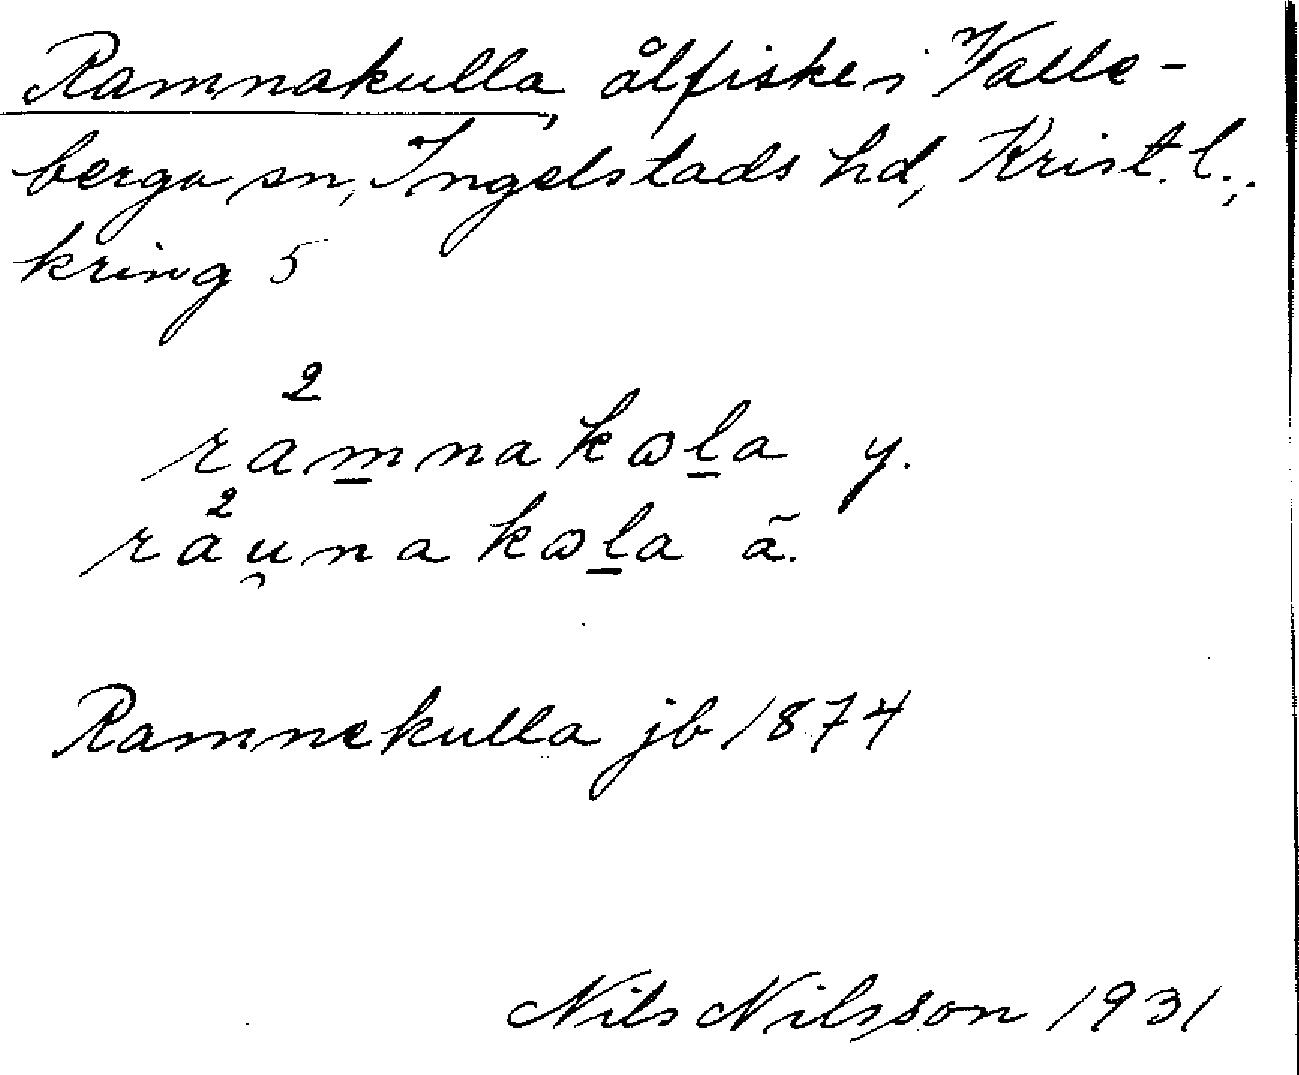 Ramnakulla, ålfiske i Valle-
berga sn, Ingelstads hd, Krist. l.,
kring 5
2
ramnakωla y.
2
råu̯nakωla ä.
Ramnekulla jb 1874
Nils Nilsson 1931